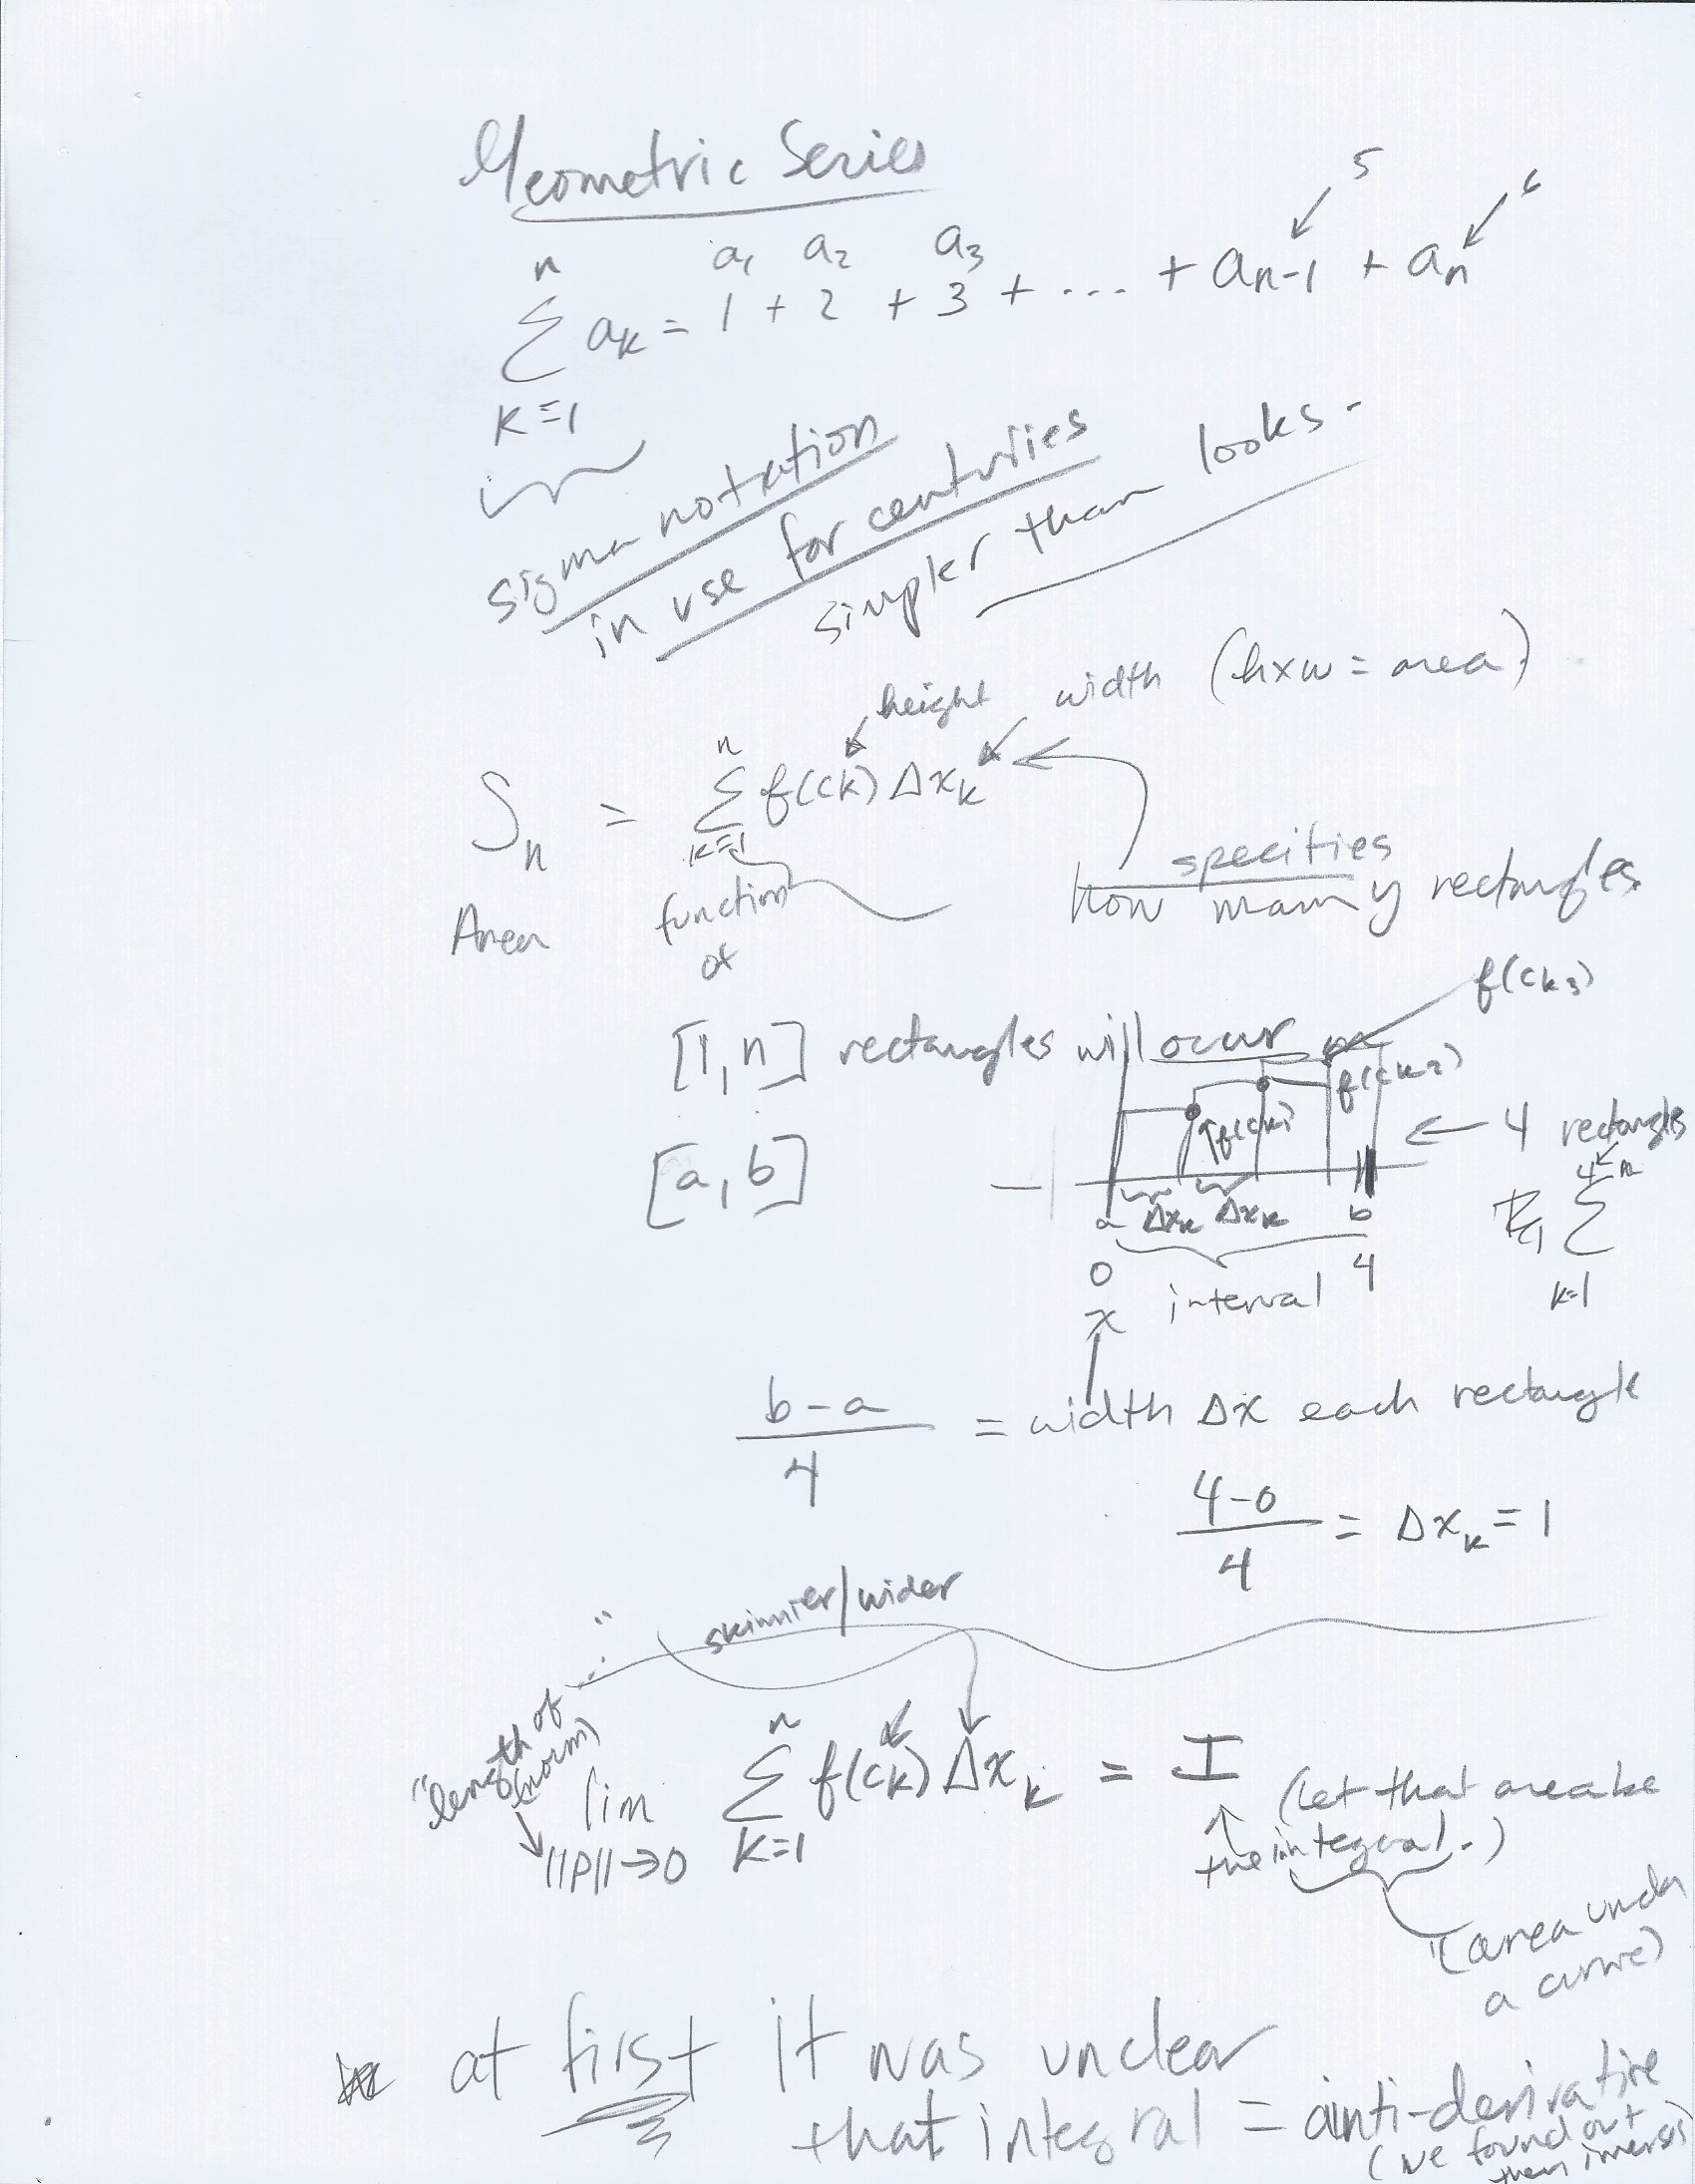 Geometric Series
5 6
n a1 a2 a3
∑ ak = 1 + 2 + 3 + .... + an-1 + an
k=1
sigma notation
in use for centuries
simpler than looks.
height width (hxw = area)
n
Sn = ∑ f(ck) Δxk
k=1
specifies
Area function how many rectangles
of
f(ck3)
[1,n] rectangles will occur
f(ck2)
f(ck1) ← 4 rectangles
[a,b]
4←n
a Δxk Δxk b ∑
0 interval 4 k=1
x
b-a
— = width Δx each rectangle
4
4-0
— = Δxk = 1
4
skinnier/wider
"length of
(norm)
n
lim ∑ f(ck) Δxk = I (let that area be
||P||→0 k=1 the integral.)
(area under
a curve)
at first it was unclear
that integral = anti-derivative
(we found out